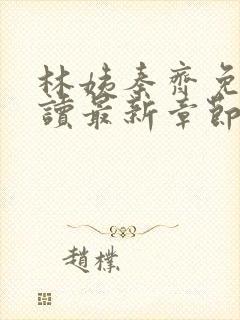 林姨秦齊免
讀最新章節
趙樸